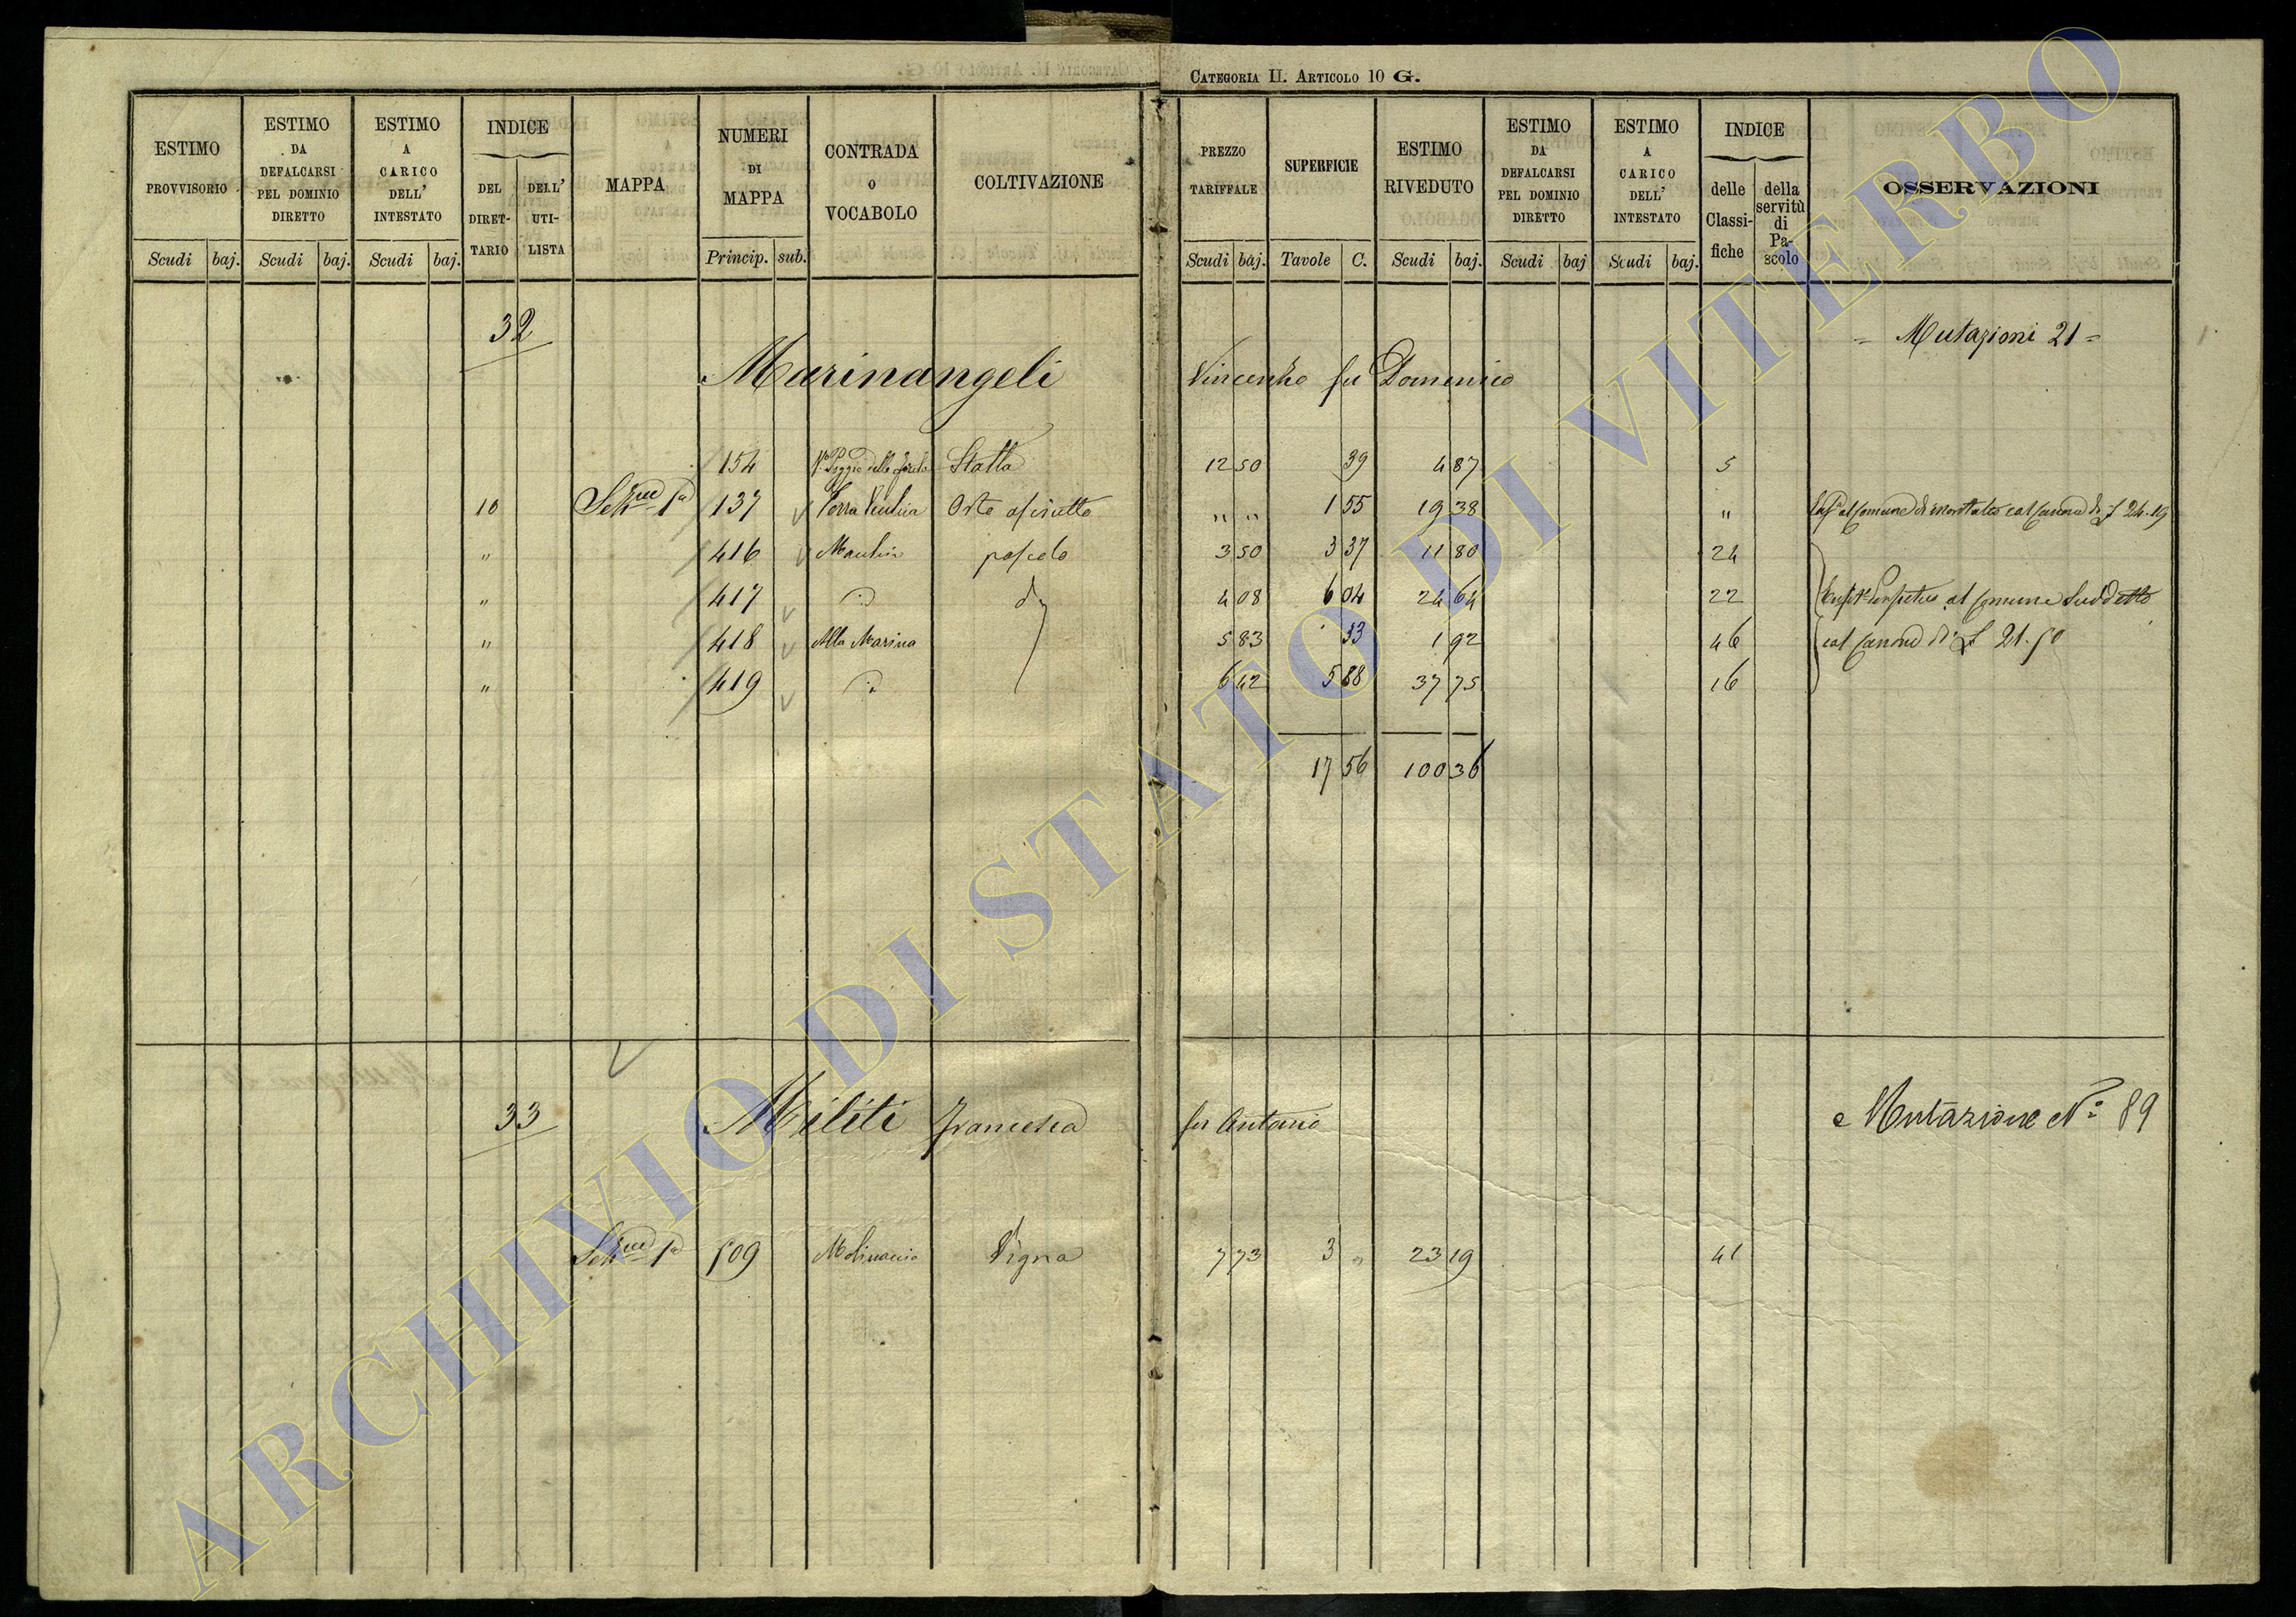 CATEGORIA II. ARTICOLO 10 G.
ESTIMO PROVVISORIO
ESTIMO DA DEFALCARSI PEL DOMINIO DIRETTO
ESTIMO A CARICO DELL' INTESTATO
INDICE
DEL DIRET-TARIO
DELL' UTI-LISTA
MAPPA
NUMERI DI MAPPA
CONTRADA O VOCABOLO
COLTIVAZIONE
PREZZO TARIFFALE
SUPERFICIE
ESTIMO RIVEDUTO
ESTIMO DA DEFALCARSI PEL DOMINIO DIRETTO
ESTIMO A CARICO DELL' INTESTATO
INDICE
delle Classi-fiche
della servitù di Pa-scolo
OSSERVAZIONI
Scudi baj. Scudi baj. Scudi baj. Princip. sub. Scudi baj. Tavole C. Scudi baj. Scudi baj Scudi baj.
32 = Mutazioni 21 =
Marinangeli Vincenzo fu Domenico
154 Poggio delle Stalla 12 50 39 4 87 5
10 Sezne 1a 137 Terra Orto asciutto " " 1 55 19 38 " al Comune di Montalto col Canone di £ 24.19
" 416 pascolo 3 50 3 37 11 80 24
" 417 d 4 08 6 04 24 64 22 Perpetua al Comune Suddetto
" 418 Alla Marina 5 83 33 1 92 46 col Canone di £ 21.50
" 419 6 42 5 88 37 75 16
17 56 100 36
33 Militi Francesca fu Antonio Mutazione No 89
Sezne 1a 509 Molinaccio Vigna 7 73 3 " 23 19 41
ARCHIVIO DI STATO DI VITERBO